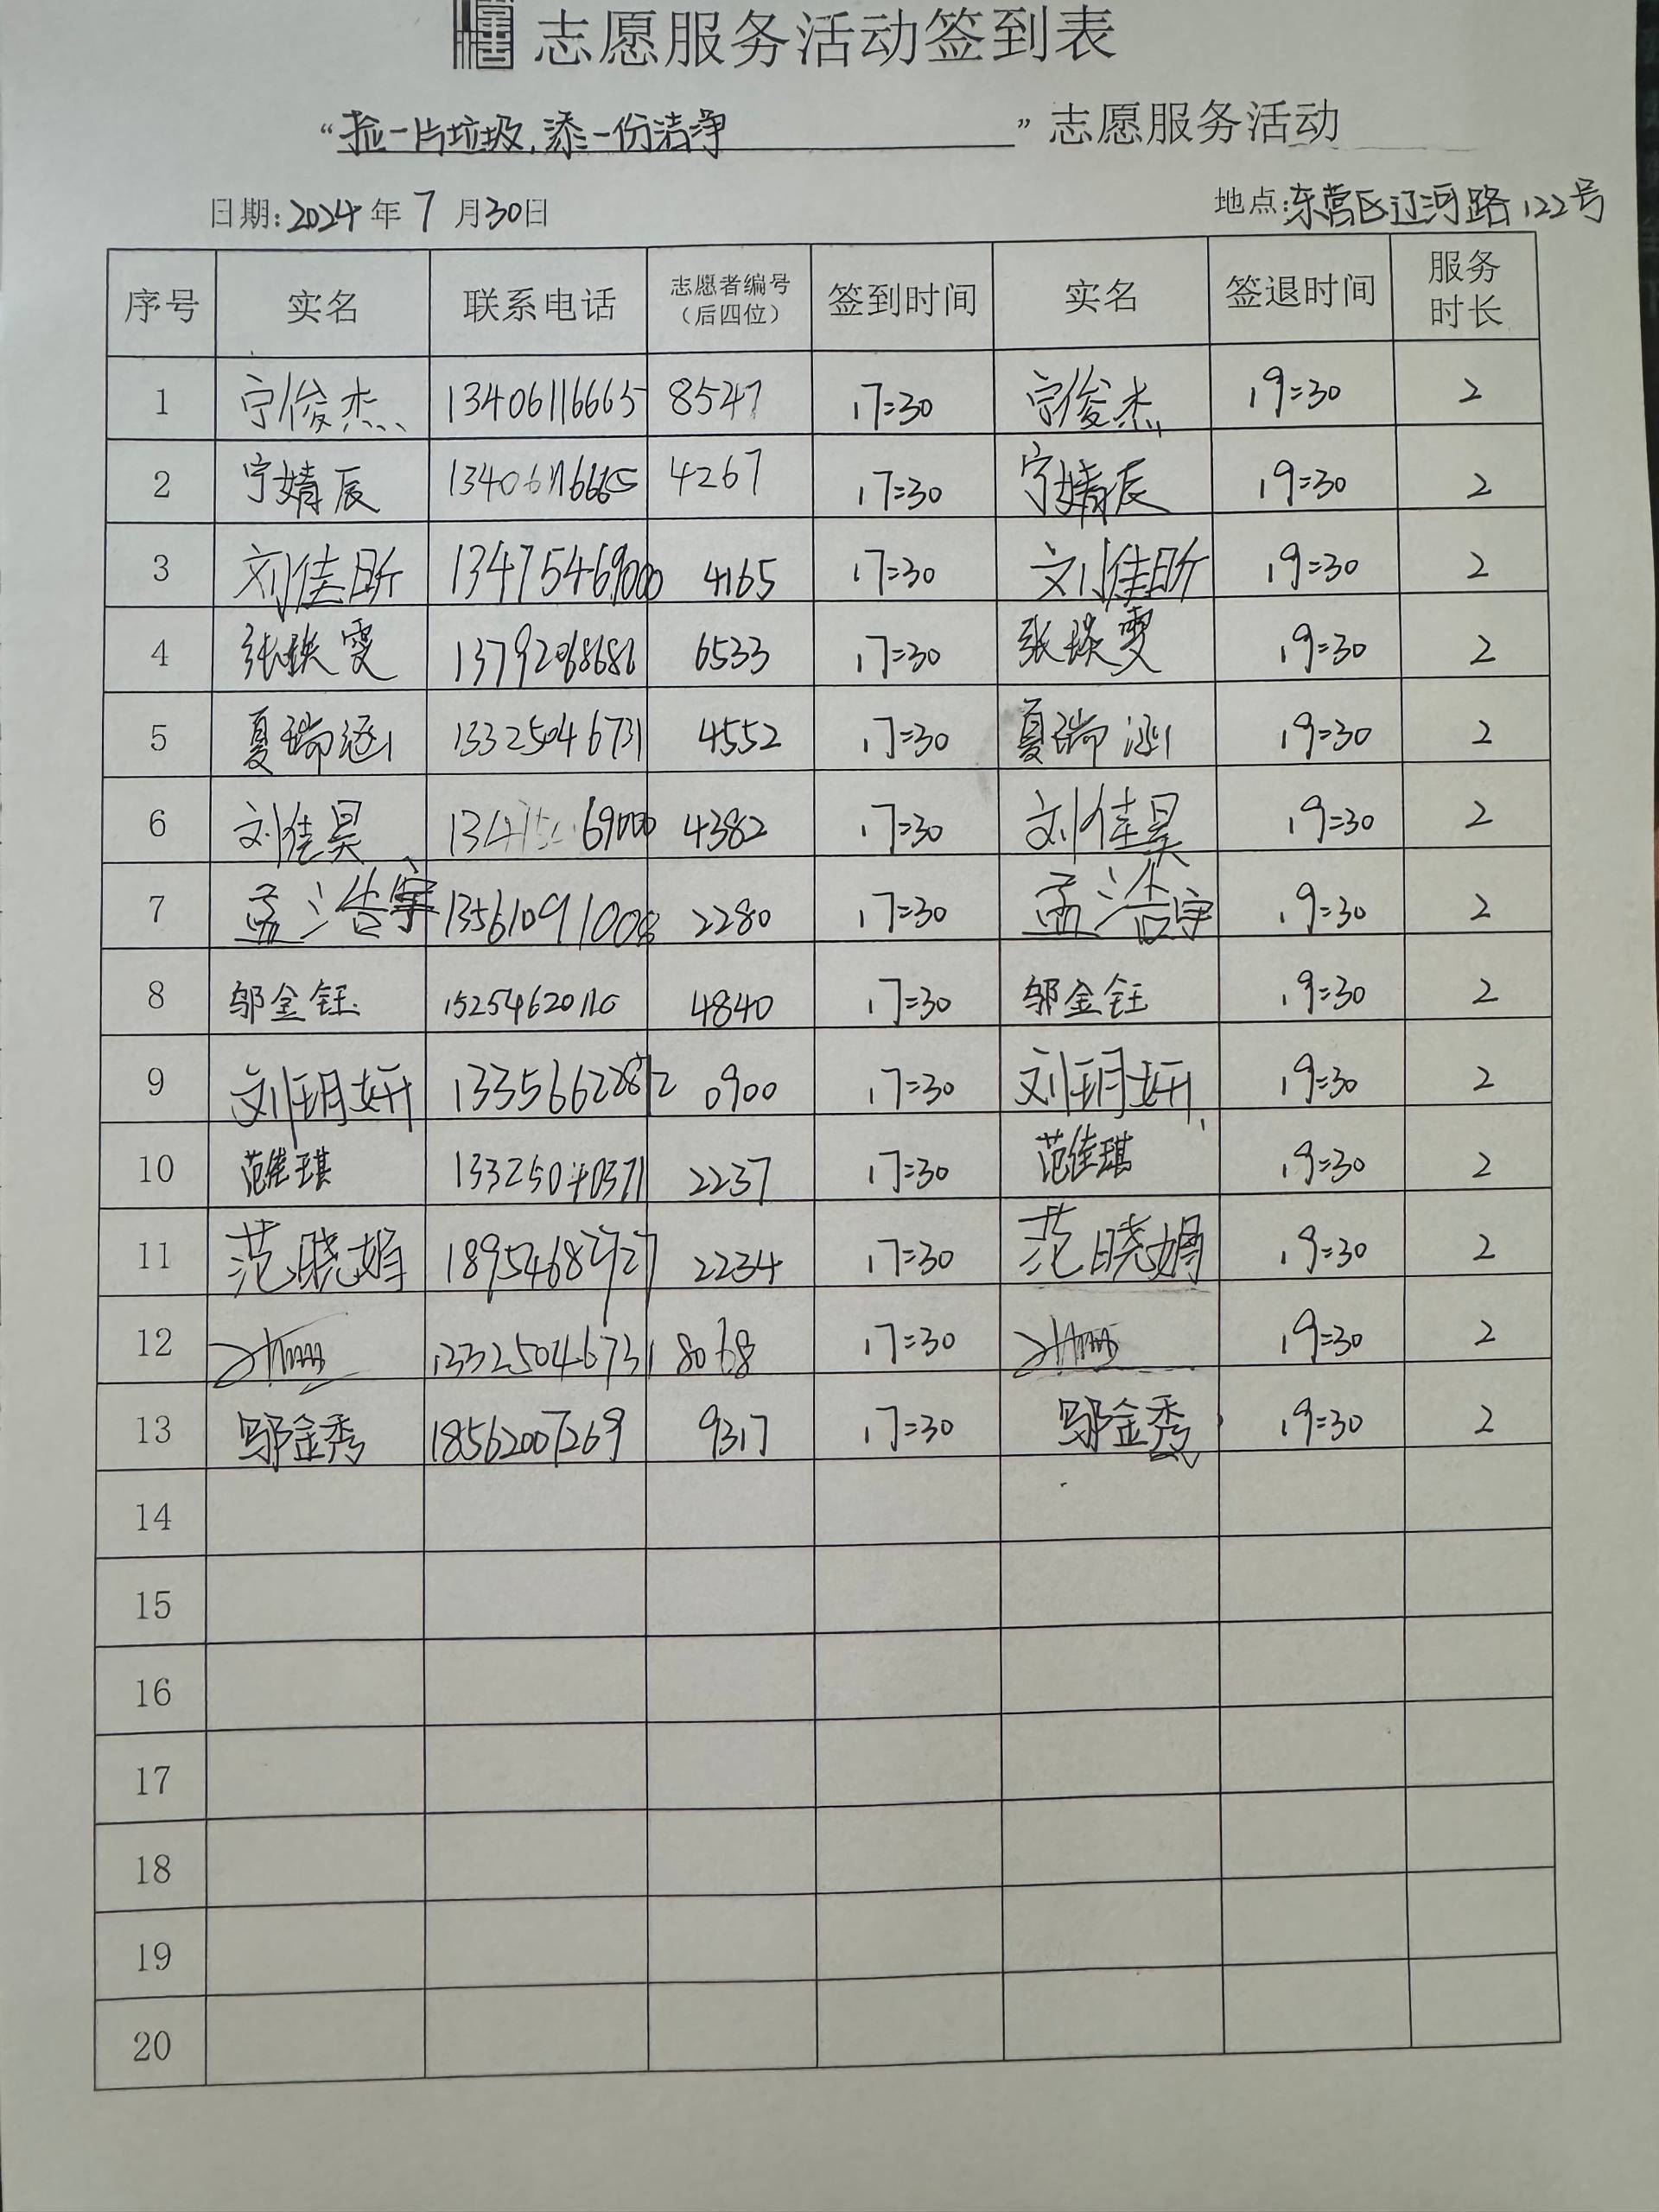 志愿服务活动签到表
“捡一片垃圾,添一份洁净”志愿服务活动
日期:2024年7月30日 地点:东营区辽河路122号
序号 实名 联系电话 志愿者编号(后四位) 签到时间 实名 签退时间 服务时长
1 宁俊杰 13406116665 8547 17:30 宁俊杰 19:30 2
2 宁婧辰 13406116665 4267 17:30 宁婧辰 19:30 2
3 刘佳昕 13475469000 4165 17:30 刘佳昕 19:30 2
4 张瑛雯 13792068686 6533 17:30 张瑛雯 19:30 2
5 夏瑞涵 13325046731 4552 17:30 夏瑞涵 19:30 2
6 刘佳昊 69000 4382 17:30 刘佳昊 19:30 2
7 孟浩宇 13561091008 2280 17:30 孟浩宇 19:30 2
8 邬金钰 4840 17:30 邬金钰 19:30 2
9 刘玥妍 13356622872 0900 17:30 刘玥妍 19:30 2
10 范佳琪 13325040371 2237 17:30 范佳琪 19:30 2
11 范晓娟 18954682727 2234 17:30 范晓娟 19:30 2
12 13325046731 8068 17:30 19:30 2
13 邬金秀 18562007269 9317 17:30 邬金秀 19:30 2
14
15
16
17
18
19
20